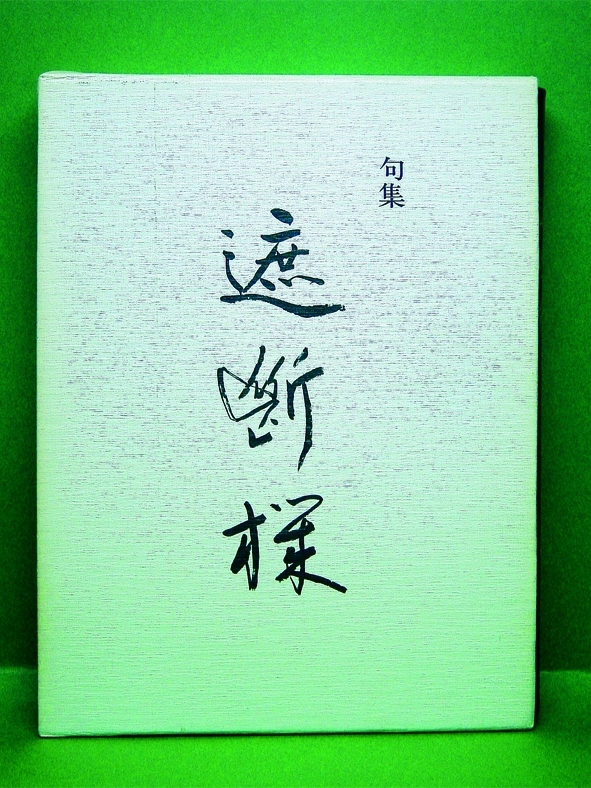 句集
遮斷機